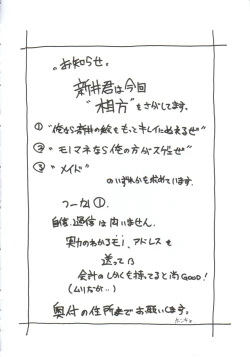 。お知らせ。
新井君は今回
"相方"をさがしてます。
① "俺なら新井の絵をもっとキレイにぬれるぜ"
② "モノマネなら俺の方がスゲェぜ"
③ "メイド"
のいずれかを求めています。
つーか①.
自信、過信は問いません。
実力のわかるモノ、アドレスを
送って
会計のしかくを持ってると尚GOOD!
(ムリなが…)
奥付の住所までお願いします。